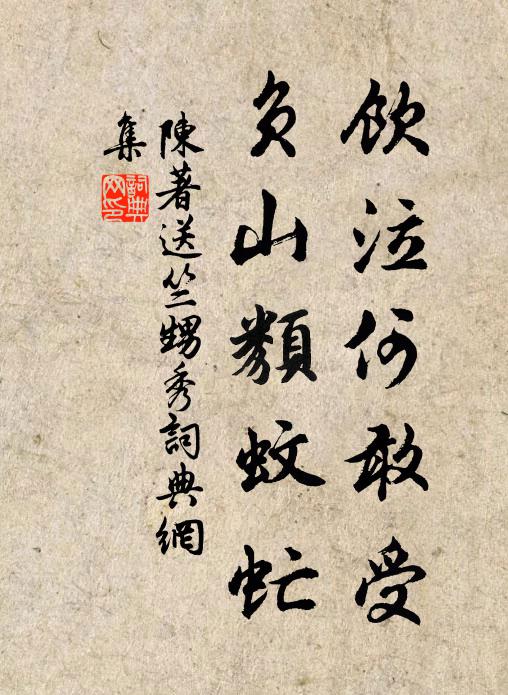 飲泣何敢受
負山類蚊虻
陳著送竺甥秀詞典網
集
詞典
网印